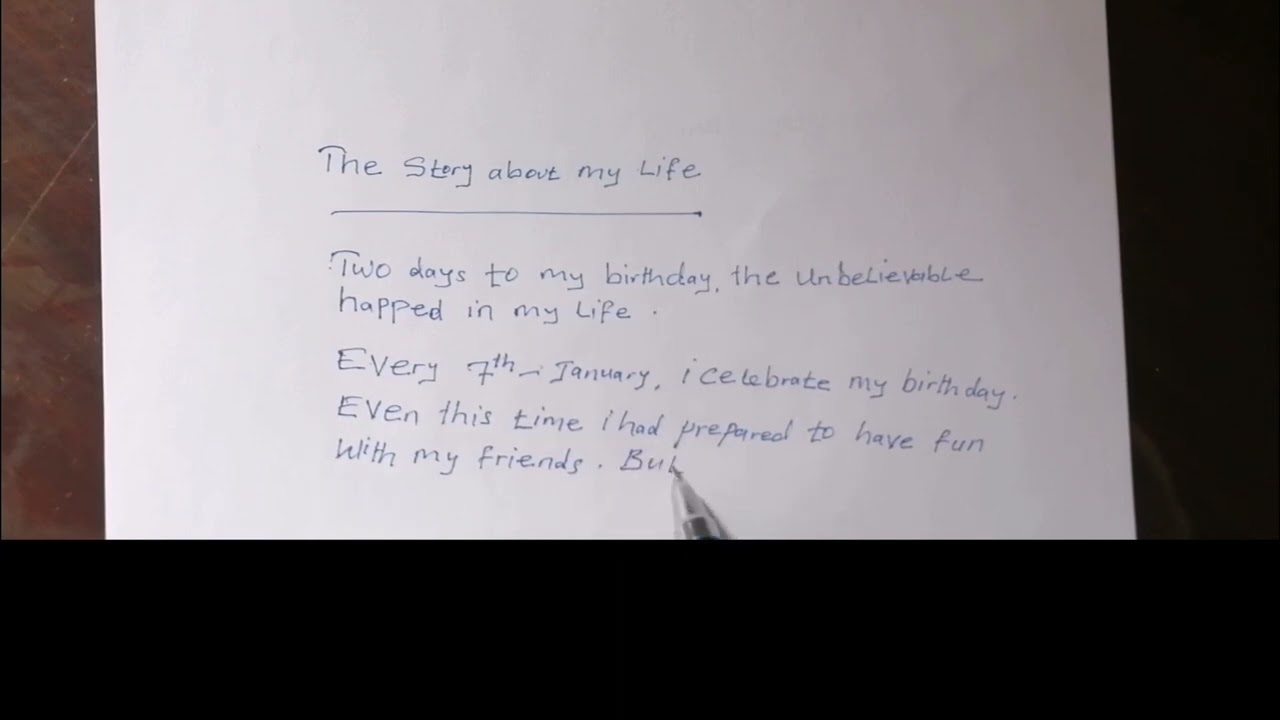 The Story about my Life
Two days to my birthday, the unbelievable
happed in my Life.
Every 7th - January, i celebrate my birthday.
Even this time i had prepared to have fun
With my friends. But